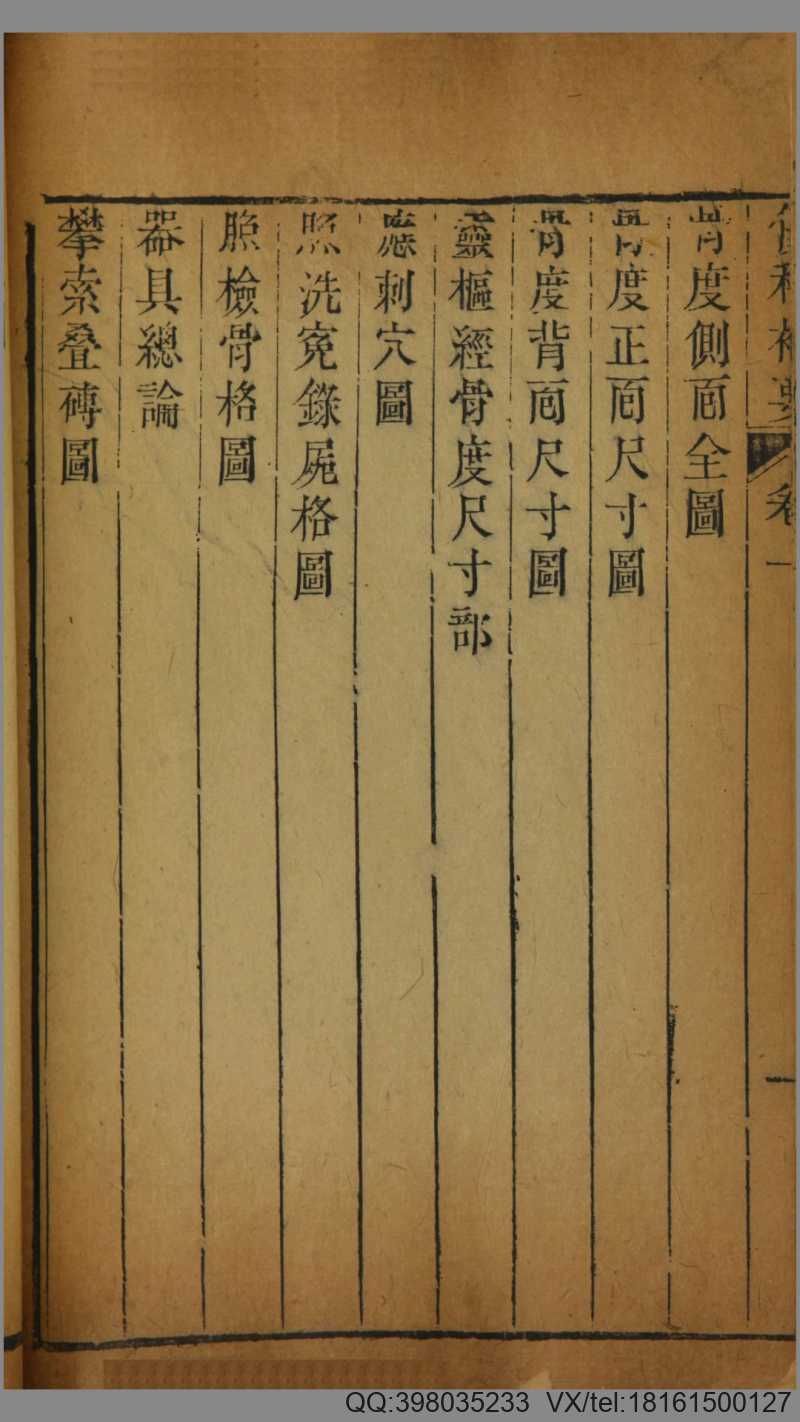 傷科補要 卷一
骨度側面全圖
骨度正面尺寸圖
骨度背面尺寸圖
靈樞經骨度尺寸部
應刺穴圖
照洗寃錄屍格圖
照檢骨格圖
器具總論
攀索叠磚圖
QQ:398035233 VX/tel:18161500127